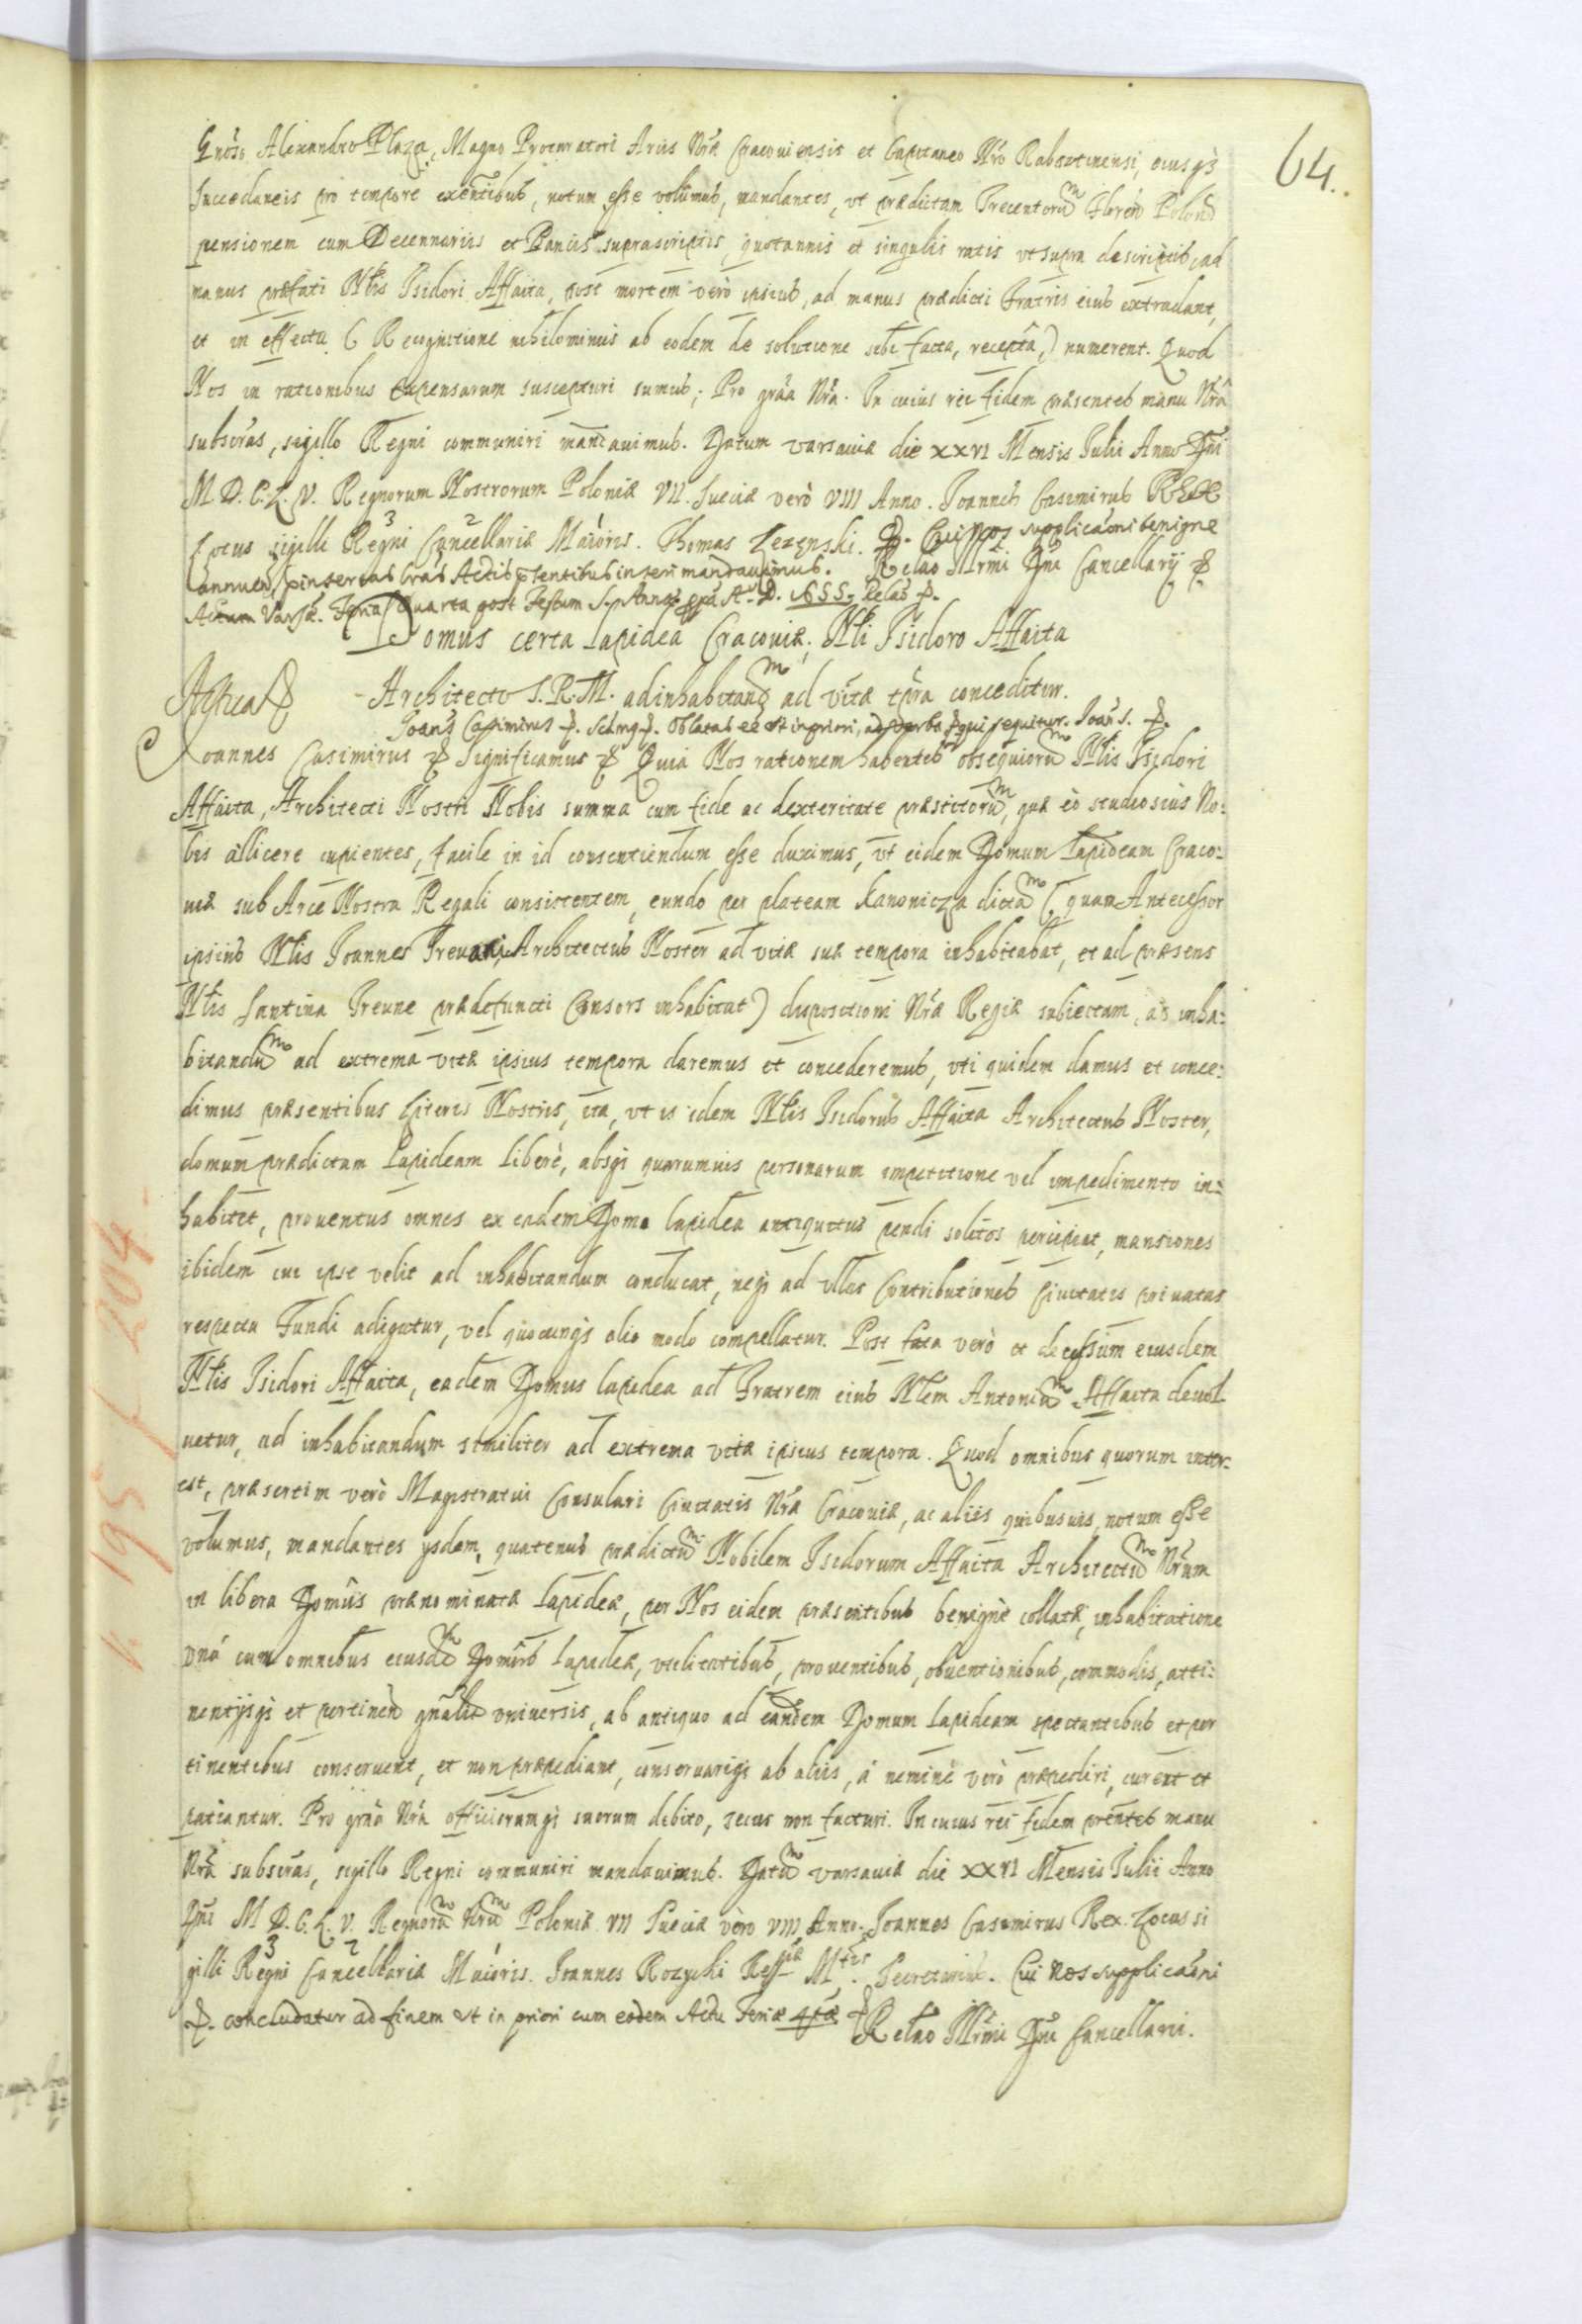 64.
Gnoso Alexandro Plaza, Magno Procuratori Arcis Nrae Cracoviensis et Capitaneo Nro Rabsztinensi, eiusq3
Succedaneis pro tempore exentibus, notum esse volumus, mandantes, vt praedictam Trecentorum floren Polon
pensionem cum Decennariis et Panis suprascriptis, quotannis et singulis ratis vt supra descriptis, ad
manus praefati Nlis Isidori Affaita, post mortem verò ipsius, ad manus praedicti Fratris eius extradant,
et in effectu (Recognitione nihilominus ab eodem de solutione sibi facta, receptâ,) numerent. Quod
Nos in rationibus expensarum suscepturi sumus; Pro graa Nra. In cuius rei fidem praesentes manu Nra
subscras, sigillo Regni communiri mandauimus. Datum varsauiae die XXVI Mensis Iulii Anno Dni
M D. C. L. V. Regnorum Nostrorum Poloniae VII. Sueciae verò VIII Anno. Joannes Casimirus REX
Locus sigilli Regni 3 Cancellariae 2 Maioris. Thomas Lezenski. Cui Nos supplicaoni benigne
annuen, pinsertas lras Actis pntentibus inseri mandauimus. Relao Illrmi Dni Cancellarij
Actum Vars. Feria Quarta post Festum S. Annae A. D. 1655. Relao
Domus certa Lapidea Cracouiae, Nli Isidoro Affaita
Architecto S. R. M. ad inhabitandum ad vitae tpra conceditur.
Joans Casimirus Oblatas ee vt in priori, ad verba qui sequitur. Joan S.
Joannes Casimirus Significamus Quia Nos rationem habentes obsequiorum Nlis Isidori
Affaita, Architecti Nostri Nobis summa cum fide ac dexteritate praestitorum, quae eò studiosius No:
bis allicere cupientes, facile in id consentiendum esse duximus, vt eidem Domum Lapideam Craco:
uiae sub Arce Nostra Regali consistentem, eundo per plateam Kanonicza dictam (quam Antecessor
ipsius Nlis Joannes Treuani, Architectus Noster ad vitae suae tempora inhabitabat, et ad praesens
Nlis Santina Treune praedefuncti Consors inhabitat) dispositioni Nrae Regiae subiectam, ad inha:
bitandum ad extrema vitae ipsius tempora daremus et concederemus, vti quidem damus et conce:
dimus praesentibus Literis Nostris, ita, vt is idem Nlis Isidorus Affaita Architectus Noster,
domum praedictam Lapideam liberè, absq3 quorumuis personarum impetitione vel impedimento in:
habitet, prouentus omnes ex eadem Domo lapidea antiquitus pendi solitos percipiat, mansiones
ibidem cui ipse velit ad inhabitandum conducat, neq3 ad vllas Contributiones Ciuitatis priuatas
respectu Fundi adigatur, vel quocunq3 alio modo compellatur. Post fata verò et decessum eiusdem
Nlis Isidori Affaita, eadem Domus lapidea ad Fratrem eius Nlem Antonium Affaita deuol
uetur, ad inhabitandum similiter ad extrema vitae ipsius tempora. Quod omnibus quorum inter:
est, praesertim verò Magistratui Consulari Ciuitatis Nrae Cracouiae, ac aliis quibusuis, notum esse
volumus, mandantes ysdem, quatenus praedictum Nobilem Isidorum Affaita Architectum Nrum
in libera Domûs praenominatae Lapideae, per Nos eidem praesentibus benignè collatae, inhabitatione
vnà cum omnibus eiusdem Domûs Lapideae, vtilitatibus, prouentibus, obuentionibus, commodis, atti:
nentijsq3 et pertinen gnaliter vniuersis, ab antiquo ad eandem Domum Lapideam spectantibus et per
tinentibus conseruent, et non praepediant, conseruariq3 ab aliis, à nemine verò praepediri, curent et
patiantur. Pro graa Nra officiorumq3 suorum debito, secus non facturi. In cuius rei fidem prentes manu
Nra subscras, sigillo Regni communiri mandauimus. Datum varsauiae die XXVI Mensis Iulii Anno
Dni M D. C. L. V. Regnorum Nrum Poloniae VII Sueciae vero VIII Anno. Joannes Casimirus Rex. Locus si
gilli Regni 3 Cancellariae 2 Maioris. Joannes Rozycki Regiae Mtis. Secretarius. Cui Nos supplicaoni
concludatur ad finem vt in priori cum eodem Actu Feriae 4tae Relao Illrmi Dni Cancellarii.